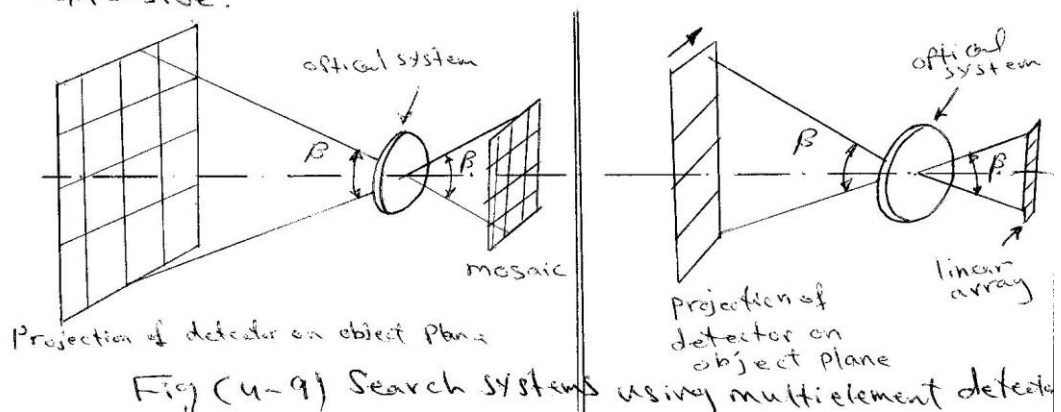 optical system
β
β
mosaic
Projection of detector on object plane
optical
system
β
β
linear
array
projection of
detector on
object plane
Fig (4-9) Search systems using multielement detecto